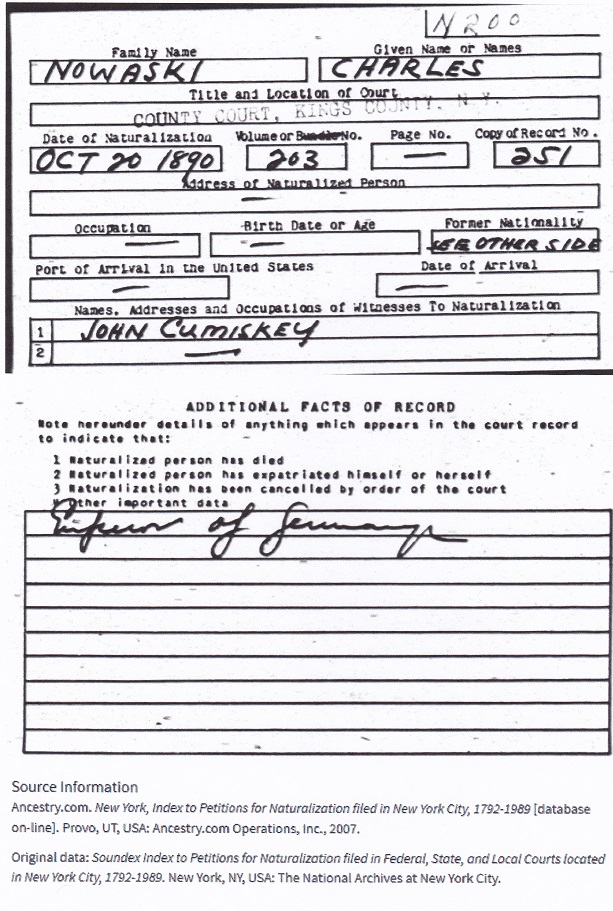 N200
Family Name Given Name or Names
NOWASKI CHARLES
Title and Location of Court
COUNTY COURT, KINGS COUNTY, N.Y.
Date of Naturalization Volume or Bundle No. Page No. Copy of Record No.
OCT 20 1890 203 — 251
Address of Naturalized Person
—
Occupation Birth Date or Age Former Nationality
— — SEE OTHER SIDE
Port of Arrival in the United States Date of Arrival
— —
Names, Addresses and Occupations of Witnesses To Naturalization
1 JOHN CUMISKEY
2 —
ADDITIONAL FACTS OF RECORD
Note hereunder details of anything which appears in the court record
to indicate that:
1 Naturalized person has died
2 Naturalized person has expatriated himself or herself
3 Naturalization has been cancelled by order of the court
Other important data
Emperor of Germany
Source Information
Ancestry.com. New York, Index to Petitions for Naturalization filed in New York City, 1792-1989 [database
on-line]. Provo, UT, USA: Ancestry.com Operations, Inc., 2007.
Original data: Soundex Index to Petitions for Naturalization filed in Federal, State, and Local Courts located
in New York City, 1792-1989. New York, NY, USA: The National Archives at New York City.